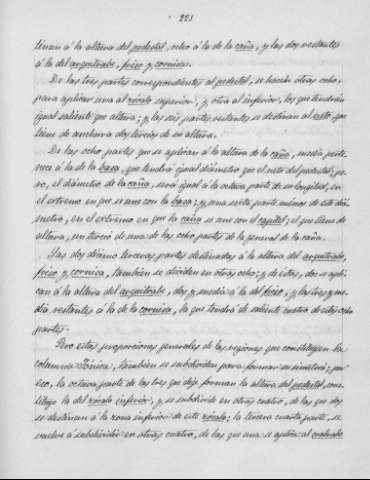 221
tinan á la altura del pedestal, ocho á la de la caña, y las dos restantes
á la del arquitrabe, friso y cornisa.
De las tres partes correspondientes al pedestal, se hacen otras ocho,
para aplicar una al zócalo superior, y otra al inferior, los que tendrán
igual saliente que altura; y las seis partes restantes se destinan al neto que
tiene de anchura dos tercios de su altura.
De las ocho partes que se aplican á la altura de la caña, media perte-
nece á la de la basa, que tendrá igual diámetro que el neto del pedestal; pe-
ro, el diámetro de la caña, será igual á la octava parte de su longitud, en
el extremo en que se une con la basa; y una sexta parte menos de este diá-
metro, en el extremo en que la caña se une con el capitel; el que tiene de
altura, un tercio de una de las ocho partes de la general de la caña.
Las dos décimo terceras partes destinadas á la altura del arquitrabe,
friso y cornisa, también se dividen en otras ocho; y de estas, dos se apli-
can á la altura del arquitrabe, dos y media á la del friso, y las tres y me-
dia restantes á la de la cornisa, la que tendrá de saliente cuatro de estas ocho
partes.
Pero estas proporciones generales de las regiones que constituyen la
columna Jónica, también se subdividen para formar su simetría: por
eso, la octava parte de las tres que dije forman la altura del pedestal, consti-
tuye la del zócalo inferior, y se subdivide en otras cuatro, de las que dos
se destinan á la zona inferior de este zócalo; la tercera cuarta parte, se
vuelve á subdividir en otras cuatro, de las que una se aplica al